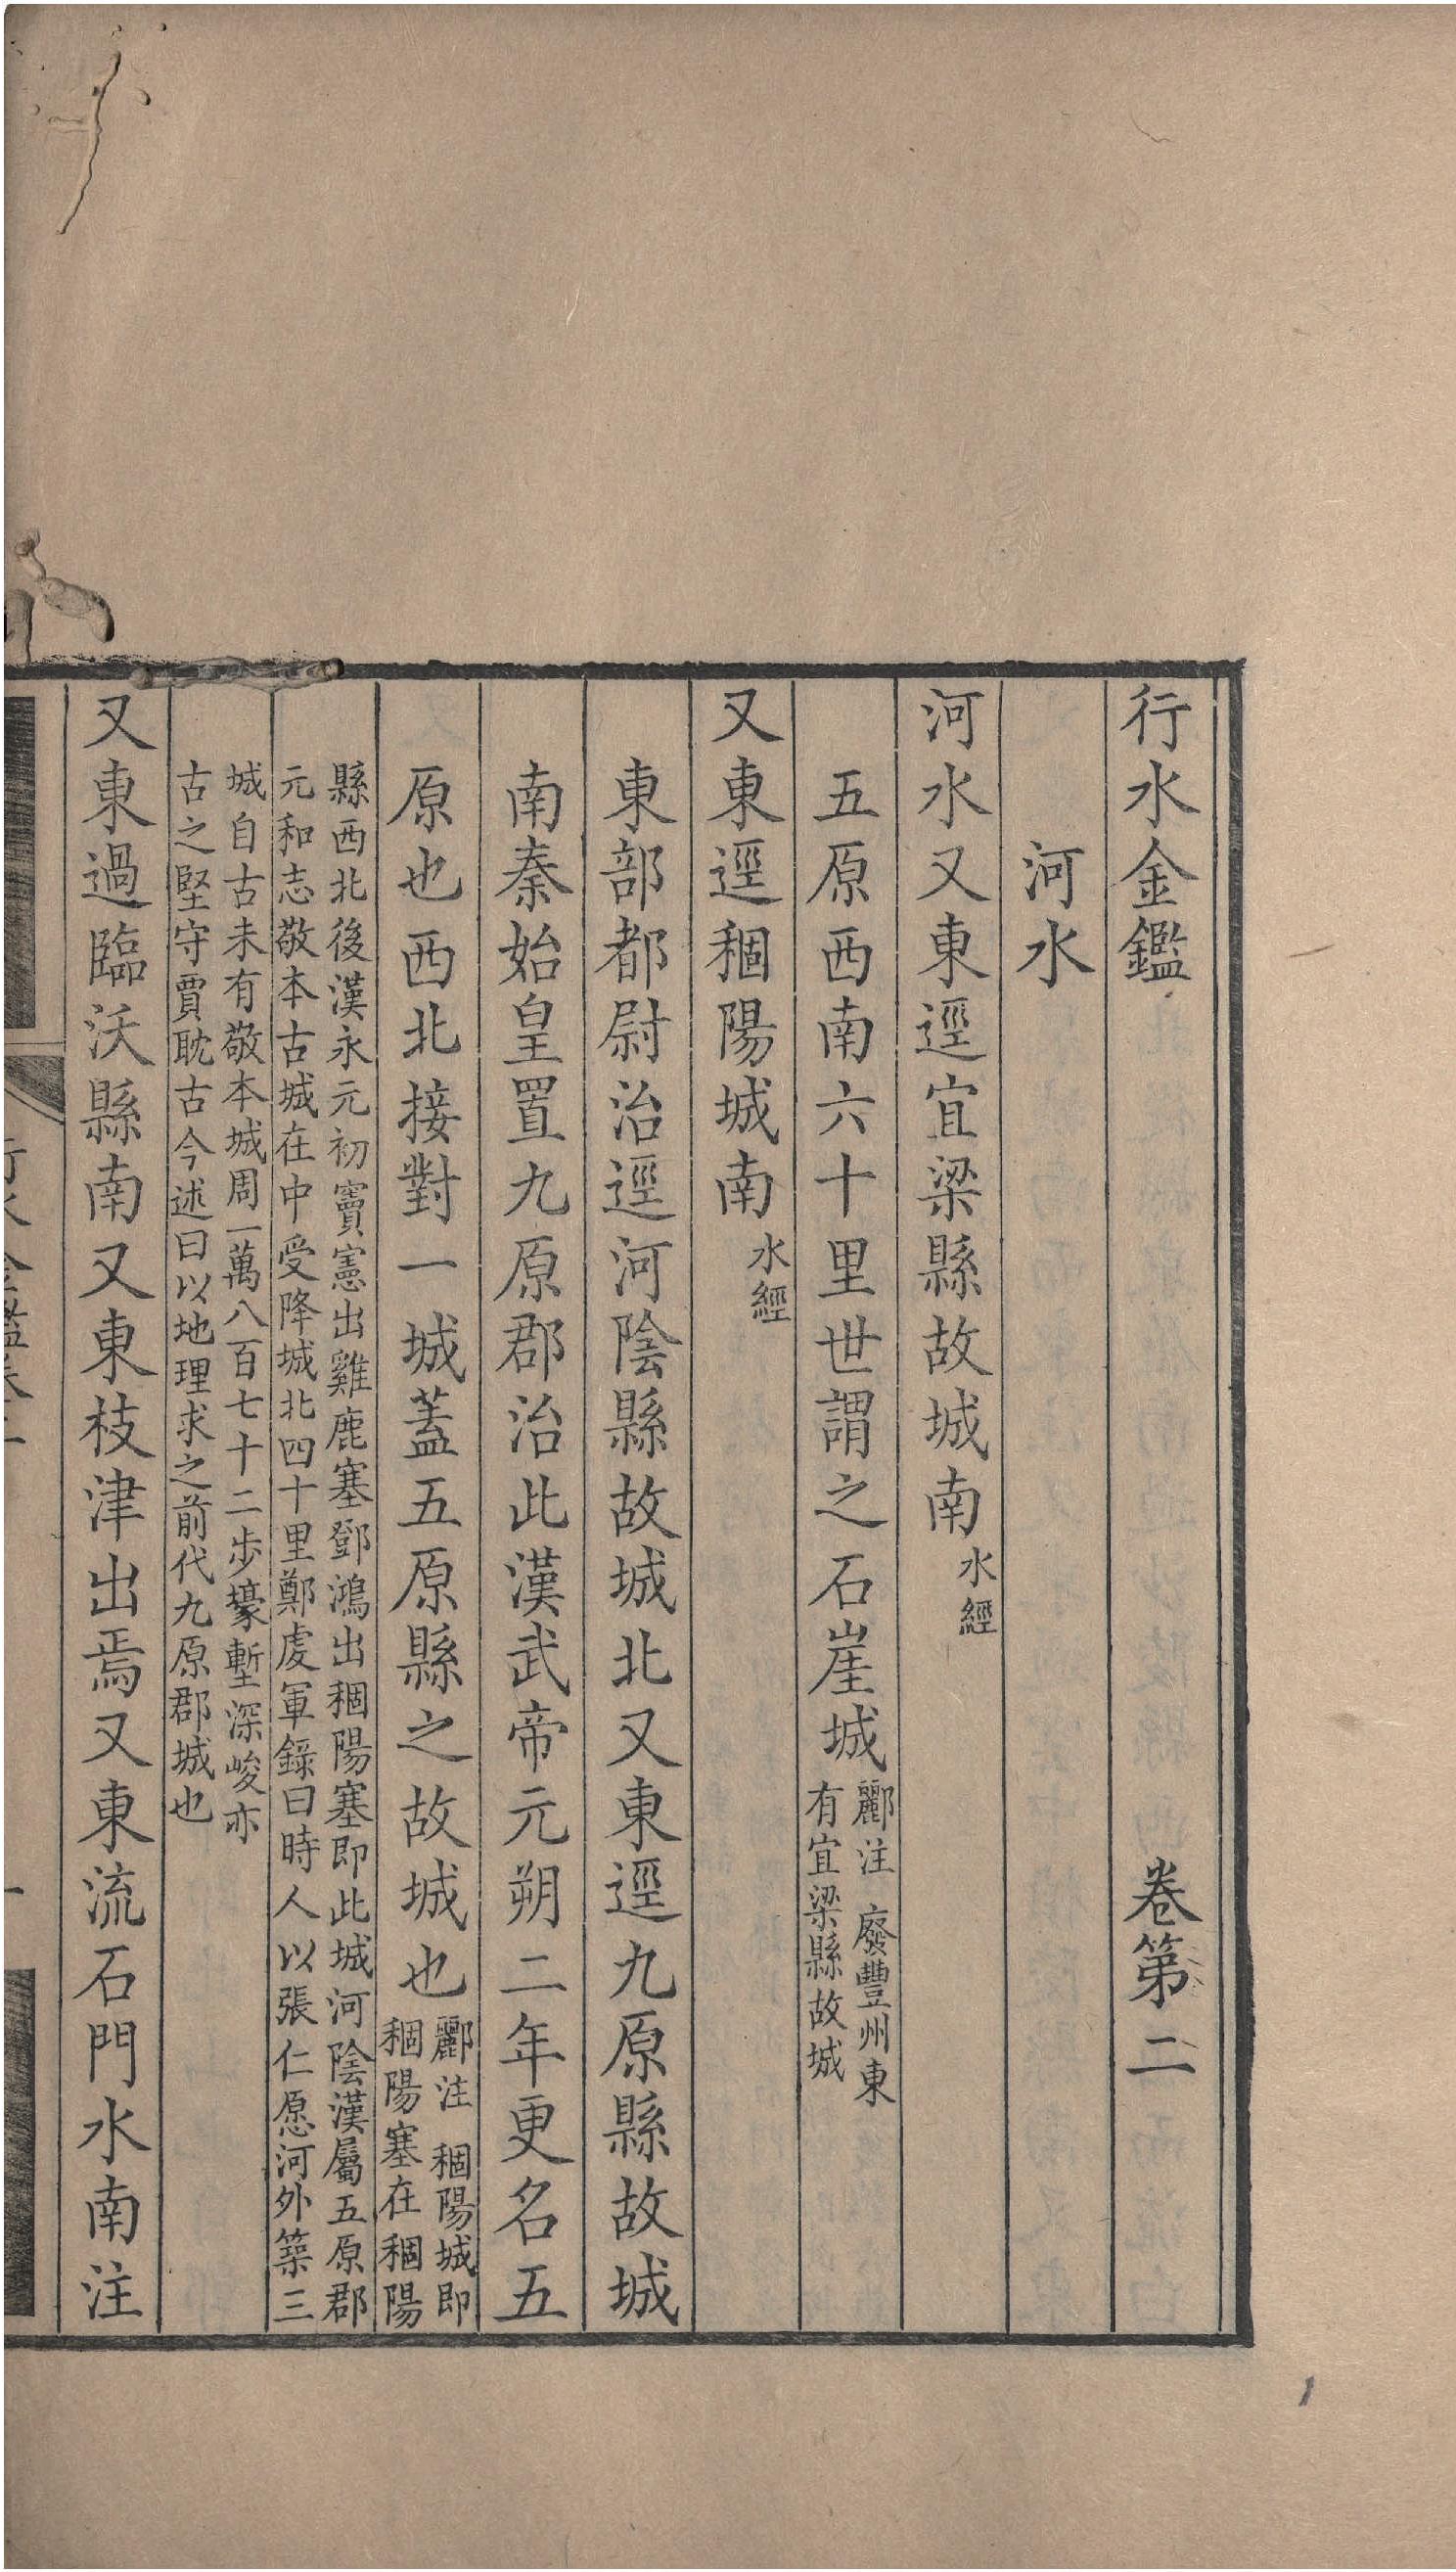 行水金鑑　卷第二
河水
河水又東逕宜梁縣故城南水經
五原西南六十里世謂之石崖城酈注　廢豐州東
有宜梁縣故城
又東逕稒陽城南水經
東部都尉治逕河陰縣故城北又東逕九原縣故城
南秦始皇置九原郡治此漢武帝元朔二年更名五
原也西北接對一城蓋五原縣之故城也酈注　稒陽城即
稒陽塞在稒陽
縣西北後漢永元初竇憲出雞鹿塞鄧鴻出稒陽塞即此城河陰漢屬五原郡
元和志敬本古城在中受降城北四十里鄭虔軍錄曰時人以張仁愿河外築三
城自古未有敬本城周一萬八百七十二步壕塹深峻亦
古之堅守賈耽古今述曰以地理求之前代九原郡城也
又東過臨沃縣南又東枝津出焉又東流石門水南注